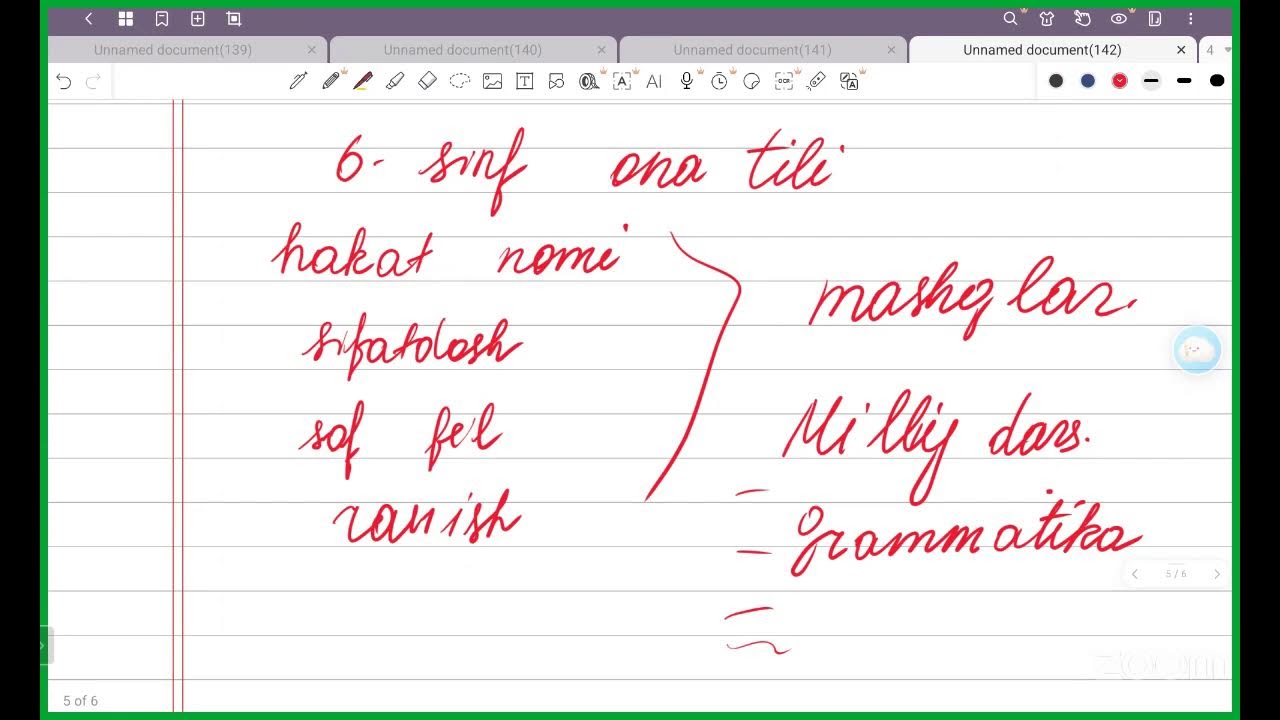 Unnamed document(139) Unnamed document(140) Unnamed document(141) Unnamed document(142) 4
AI
6- sinf ona tili
hakat nomi
mashqlar.
sifatdosh
Milliy dars.
sof fe'l
ravish
Grammatika
5/6
zoom
5 of 6